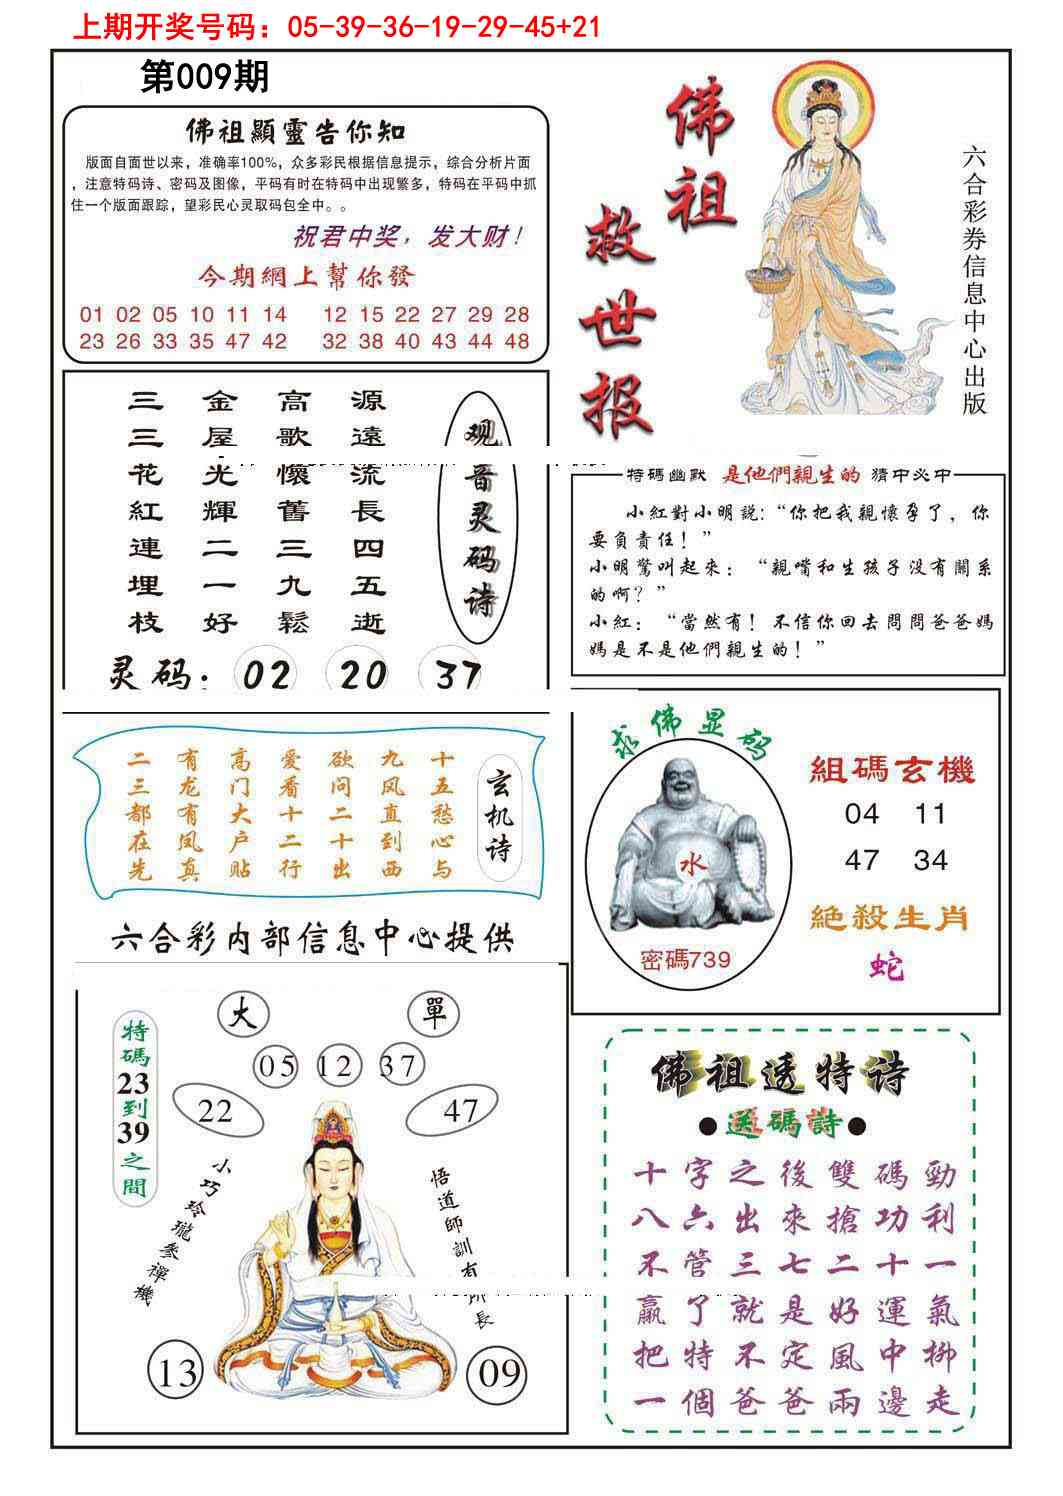 上期开奖号码：05-39-36-19-29-45+21
第009期
佛祖顯靈告你知
版面自面世以来，准确率100%，众多彩民根据信息提示，综合分析片面
，注意特码诗、密码及图像，平码有时在特码中出现繁多，特码在平码中抓
住一个版面跟踪，望彩民心灵取码包全中。。
祝君中奖，发大财！
今期網上幫你發
01 02 05 10 11 14 12 15 22 27 29 28
23 26 33 35 47 42 32 38 40 43 44 48
佛祖
救世报
六合彩券信息中心出版
观音灵码诗
源遠流長四五逝
高歌懷舊三九鬆
金屋光輝二一好
三三花紅連埋枝
灵码：02 20 37
特碼幽默 是他們親生的 猜中必中
小紅對小明説：“你把我親懷孕了，你
要負責任！”
小明驚叫起來：“親嘴和生孩子没有關系
的啊？”
小紅：“當然有！不信你回去問問爸爸媽
媽是不是他們親生的！”
玄机诗
十五愁心与
九风直到西
欲问二十出
爱看十二行
高门大户贴
有龙有凤真
二三都在先
六合彩内部信息中心提供
求佛显码
水
密碼739
組碼玄機
04 11
47 34
絕殺生肖
蛇
大 單
05 12 37
22 47
特碼23到39之間
小巧玲瓏參禪機
悟道師訓有所長
13 09
佛祖透特诗
●送碼詩●
十字之後雙碼勁
八六出來搶功利
不管三七二十一
贏了就是好運氣
把特不定風中柳
一個爸爸兩邊走